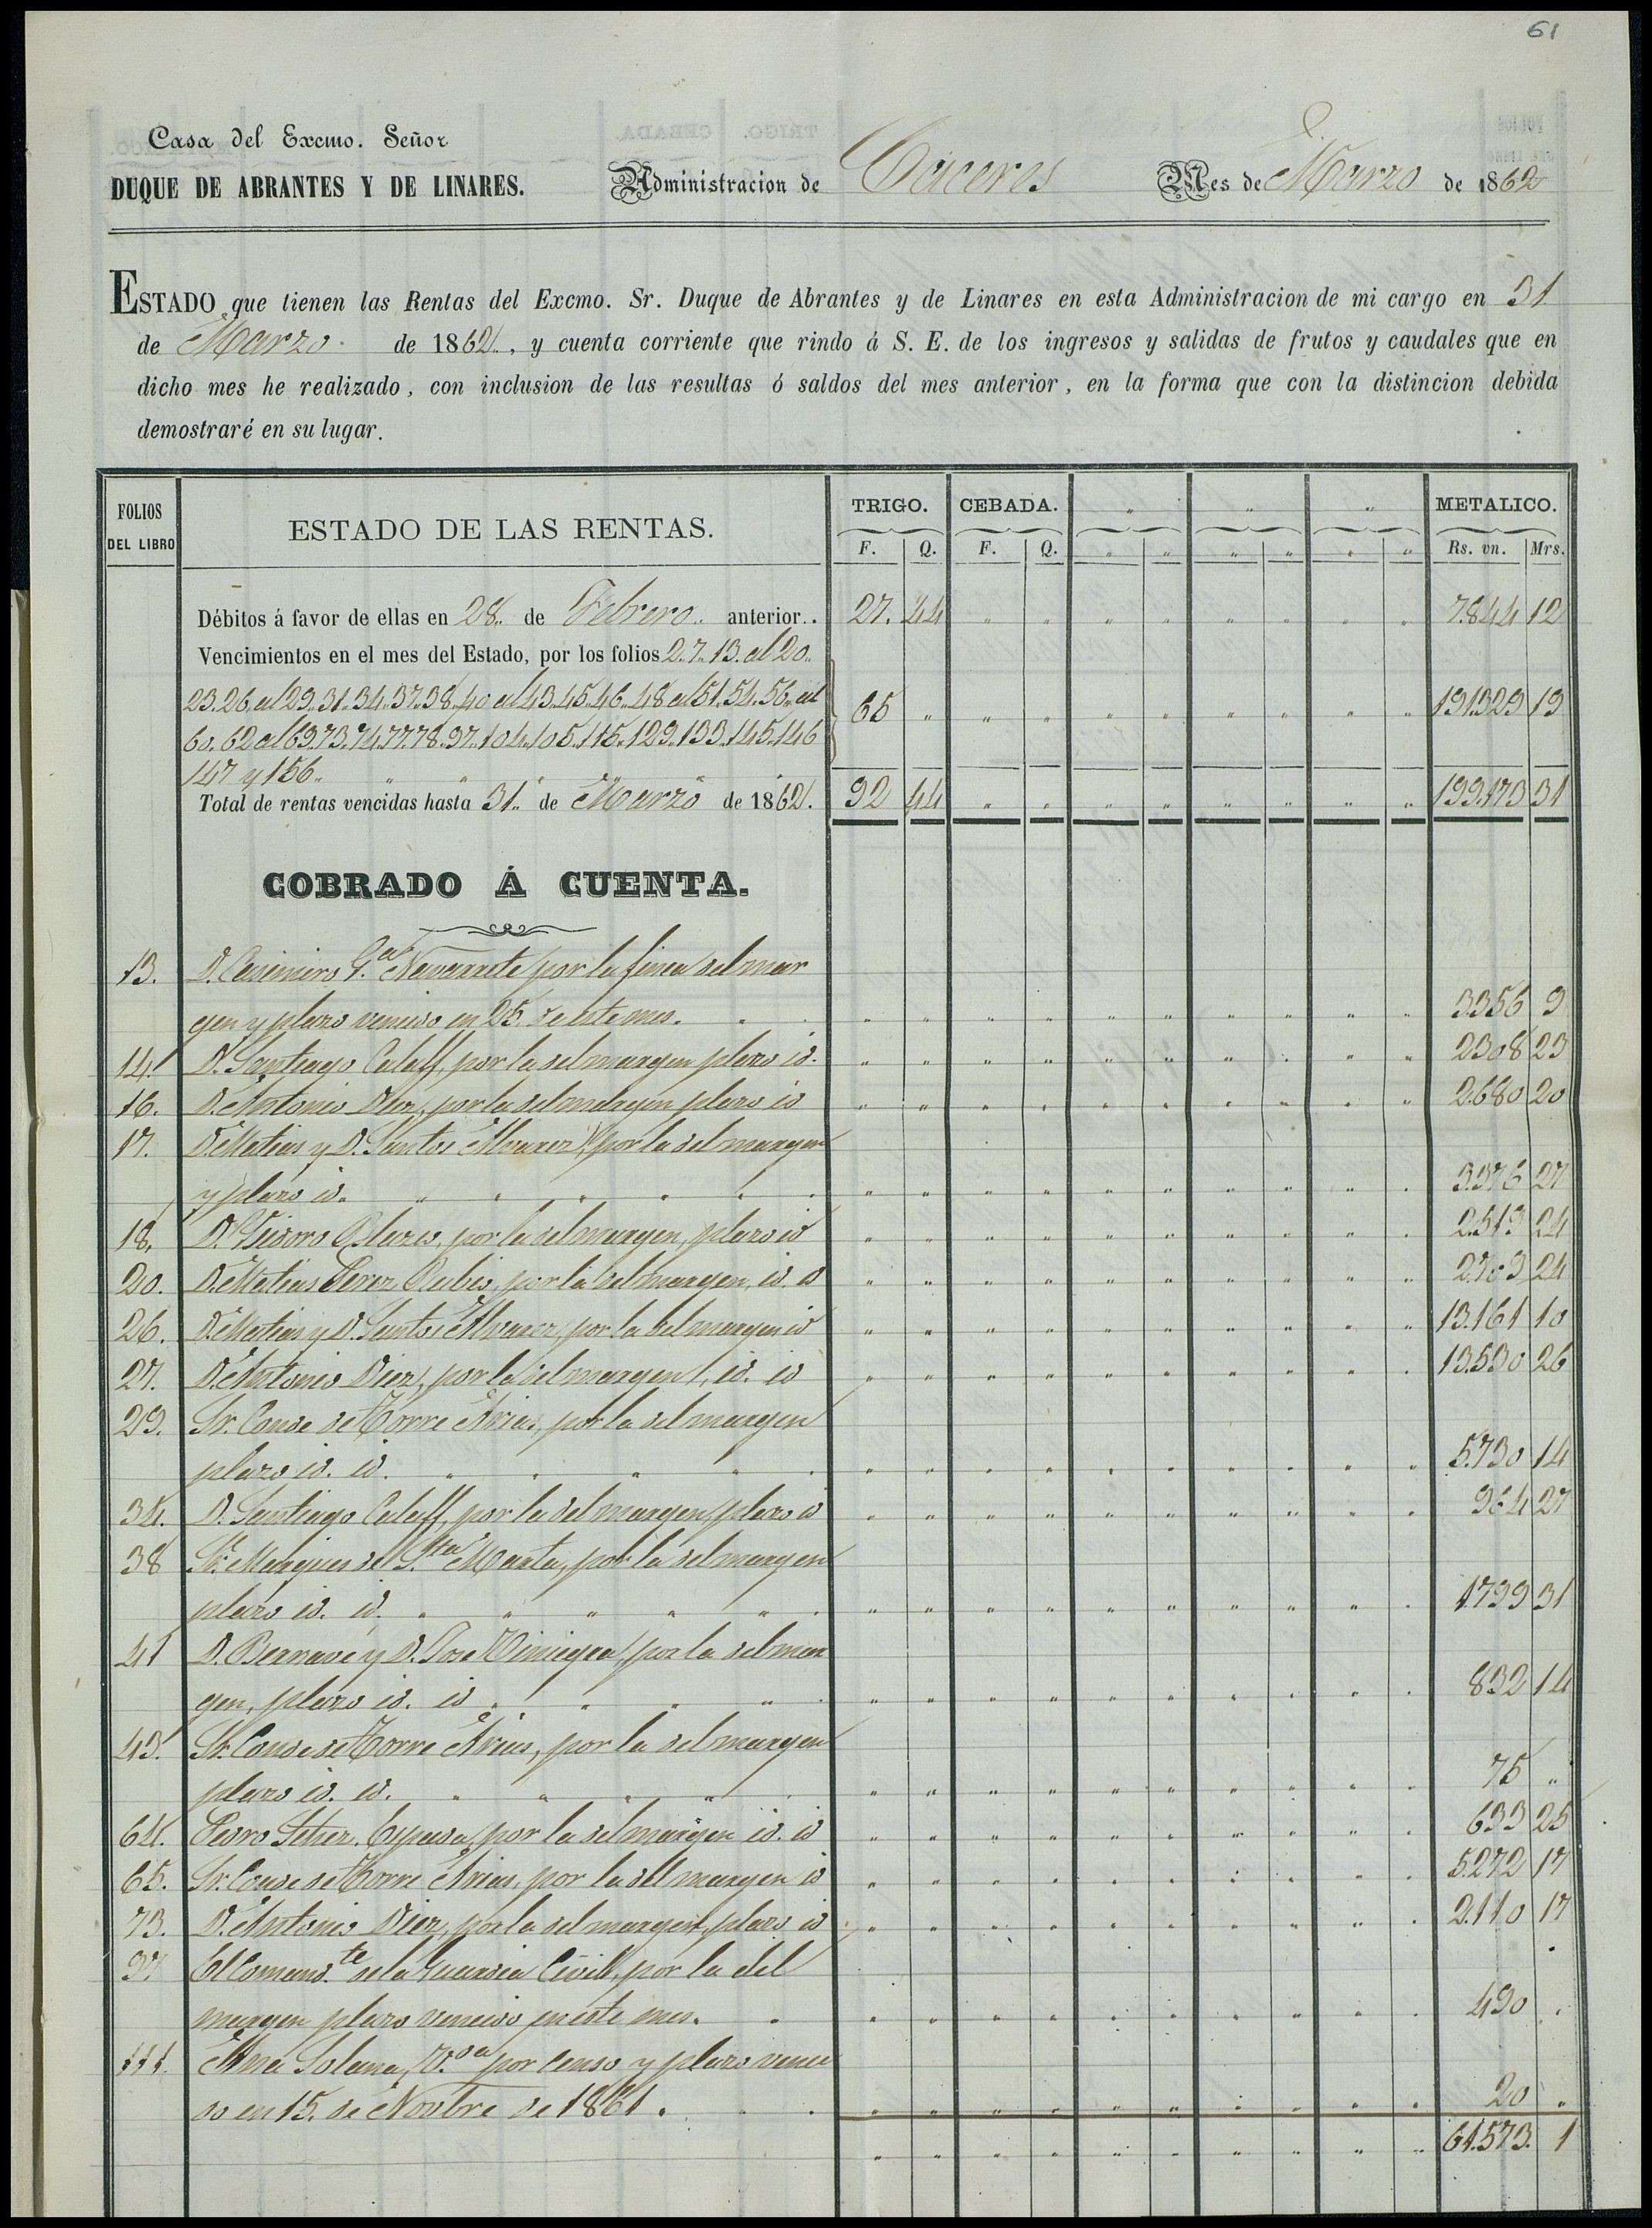 61
Casa del Excmo. Señor
DUQUE DE ABRANTES Y DE LINARES. Administracion de Cáceres Mes de Marzo de 1862
ESTADO que tienen las Rentas del Excmo. Sr. Duque de Abrantes y de Linares en esta Administracion de mi cargo en 31
de Marzo de 1862., y cuenta corriente que rindo á S. E. de los ingresos y salidas de frutos y caudales que en
dicho mes he realizado, con inclusion de las resultas ó saldos del mes anterior, en la forma que con la distincion debida
demostraré en su lugar.
FOLIOS DEL LIBRO ESTADO DE LAS RENTAS. TRIGO. CEBADA. " " " METALICO.
F. Q. F. Q. " " " " " " Rs. vn. Mrs.
Débitos á favor de ellas en 28.. de Febrero.. anterior.. 27. 44 " " " " " " " " 7844 12
Vencimientos en el mes del Estado, por los folios 2..7..13. al 20..
23.26. al 29..31..34..37..38..40 al 43.45.46..48 al 51.54.56.. al 65 " " " " " " " " " 191.329 19
60. 62 al 69.73.74.77.78..97..104..105..115..129..133..145..146
147 y 156..
Total de rentas vencidas hasta 31.. de Marzo de 1862. 92 44 " " " " " " " " 199.173 31
COBRADO Á CUENTA.
13. D. Casimiro G.ª Navarrete por la finca del mar
gen y plazo vencido en 25. de este mes. " " " " " " " " " " 3356 9
14. D. Santiago Calaff, por la del margen plazo id. " " " " " " " " " " 2308 23
16. D. Antonio Diez, por la del margen plazo id " " " " " " " " " " 2.680 20
17. D. Matias y D. Santos Alvarez, por la del margen
y plazo id. " " " " " " " " " " 3.376 27
18. D. Isidoro Plazas, por la del margen, plazo id " " " " " " " " " " 2.519 24
20. D. Matias Perez Rubio, por la del margen, id. id " " " " " " " " " " 2.703 24
26. D. Matias y D. Santos Alvarez, por la del margen id " " " " " " " " " " 13.161 10
27. D. Antonio Diez, por la del margen, id. id " " " " " " " " " " 13.530 26
29. Sr. Conde de Torre Arias, por la del margen
plazo id. id. " " " " " " " " " " 5.730 14
34. D. Santiago Calaff, por la del margen, plazo id " " " " " " " " " " 964 27
38 Sr. Marques de S.ta Marta, por la del margen
plazo id. id. " " " " " " " " " " 1799 31
41 D. Bernavé y D. Jose Viniegra, por la del mar
gen, plazo id. id " " " " " " " " " " 832 14
43. Sr. Conde de Torre Arias, por la del margen
plazo id. id. " " " " " " " " " " 75 "
64. Pedro por la del margen id. id " " " " " " " " " " 633 25
65. Sr. Conde de Torre Arias, por la del margen id " " " " " " " " " " 5.272 17
73. D. Antonio Diez, por la del margen, plazo id " " " " " " " " " " 2.110 17
97. El Comand.te de la Guardia Civil, por la del
margen plazo vencido en este mes. " " " " " " " " " " 490 "
111. Ana Solana, V.da por censo y plazo venci
do en 15. de Novbre de 1861. " " " " " " " " " " 20 "
" " " " " " " " " " 61.573. 1